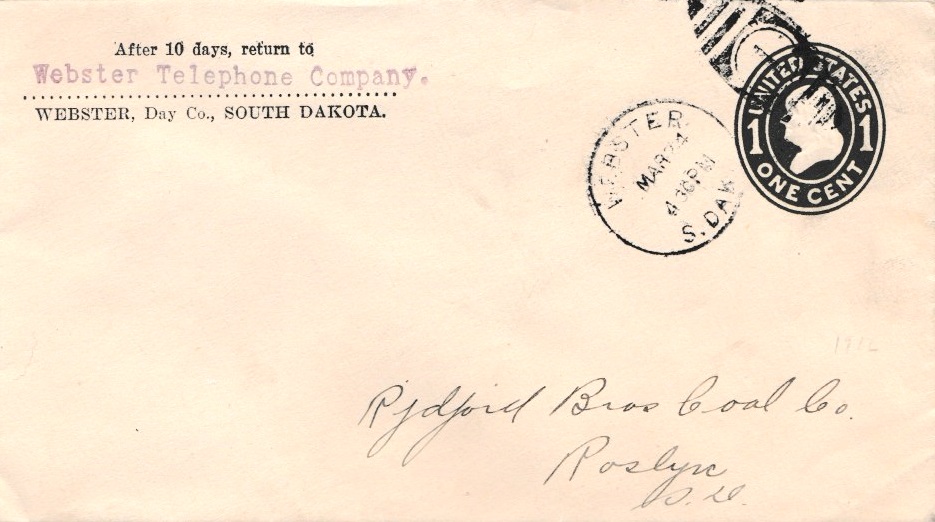 After 10 days, return to
Webster Telephone Company.
WEBSTER, Day Co., SOUTH DAKOTA.
WEBSTER
MAR 24
4 30 PM
S. DAK
1
UNITED STATES
1 1
ONE CENT
1912
Bros Coal Co.
Roslyn
S. D.